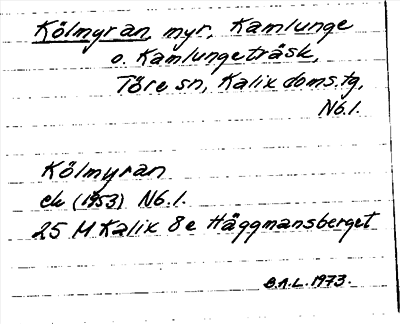 Kölmyran, myr, Kamlunge
o. Kamlungeträsk,
Töre sn, Kalix doms.tg,
Nb.l.
Kölmyran
ek (1953) Nb.l.
25 M Kalix 8e Häggmansberget
B.A.L. 1973.